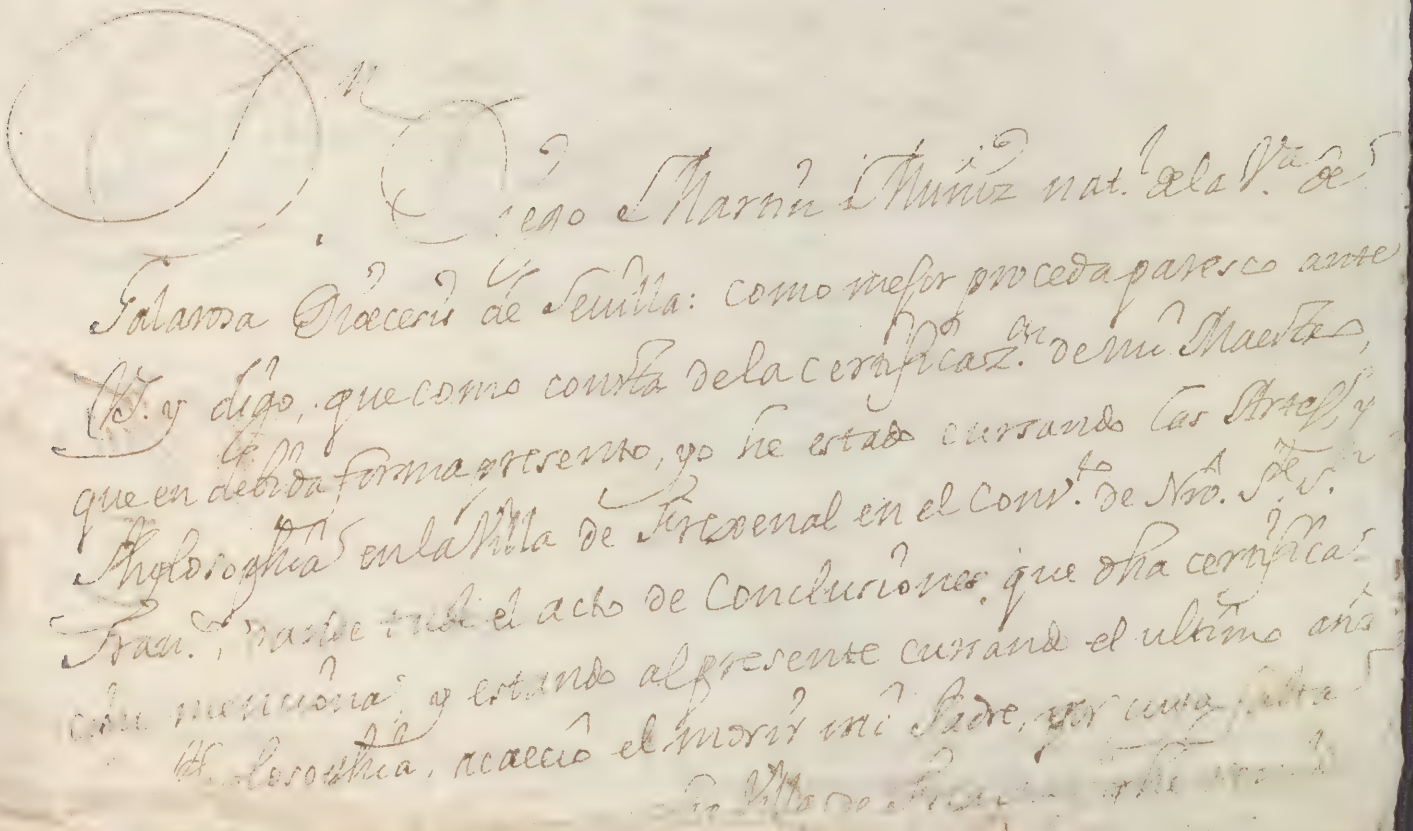 Diego Martin Muñiz nat.l de la V.a de
Galarosa Dioecesis de Sevilla: como mejor proceda paresco ante
V.S. y digo, que como consta de la certificaz.on de mi Maestro,
que en debida forma presento, yo he estado cursando las Artes, y
Philosophia en la Villa de Frexenal en el Conv.to de Nro. S.
Fran.co, tube el acto de Conclusiones, que dha certifica-
cion menciona; y estando al presente cursando el ultimo año
Philosophia, acaeciò el morir mi Padre, por cuya falta